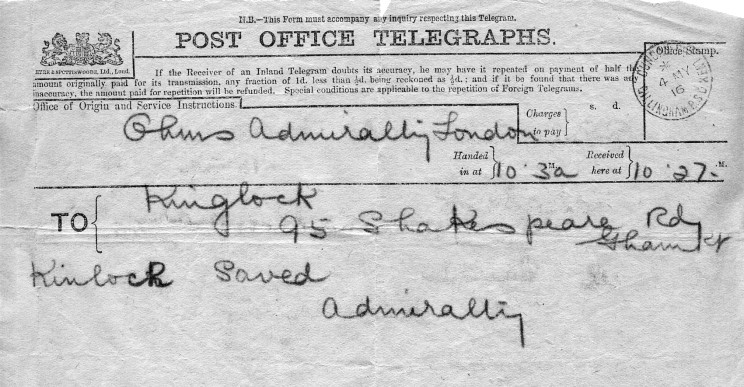 N.B.—This Form must accompany any inquiry respecting this Telegram.
POST OFFICE TELEGRAPHS.
EYRE & SPOTTISWOODE, Ltd., Lond.
Office Stamp.
4 MY
16
GILLINGHAM
If the Receiver of an Inland Telegram doubts its accuracy, he may have it repeated on payment of half the
amount originally paid for its transmission, any fraction of 1d. less than ½d. being reckoned as ½d.; and if it be found that there was any
inaccuracy, the amount paid for repetition will be refunded. Special conditions are applicable to the repetition of Foreign Telegrams.
Office of Origin and Service Instructions.
Charges to pay
s. d.
Ohms Admiralty London
Handed in at 10.3
Received here at 10.27 M.
TO
Kinglock
95 Shakespeare Rd
Gham Kt
Kinlock Saved
Admiralty